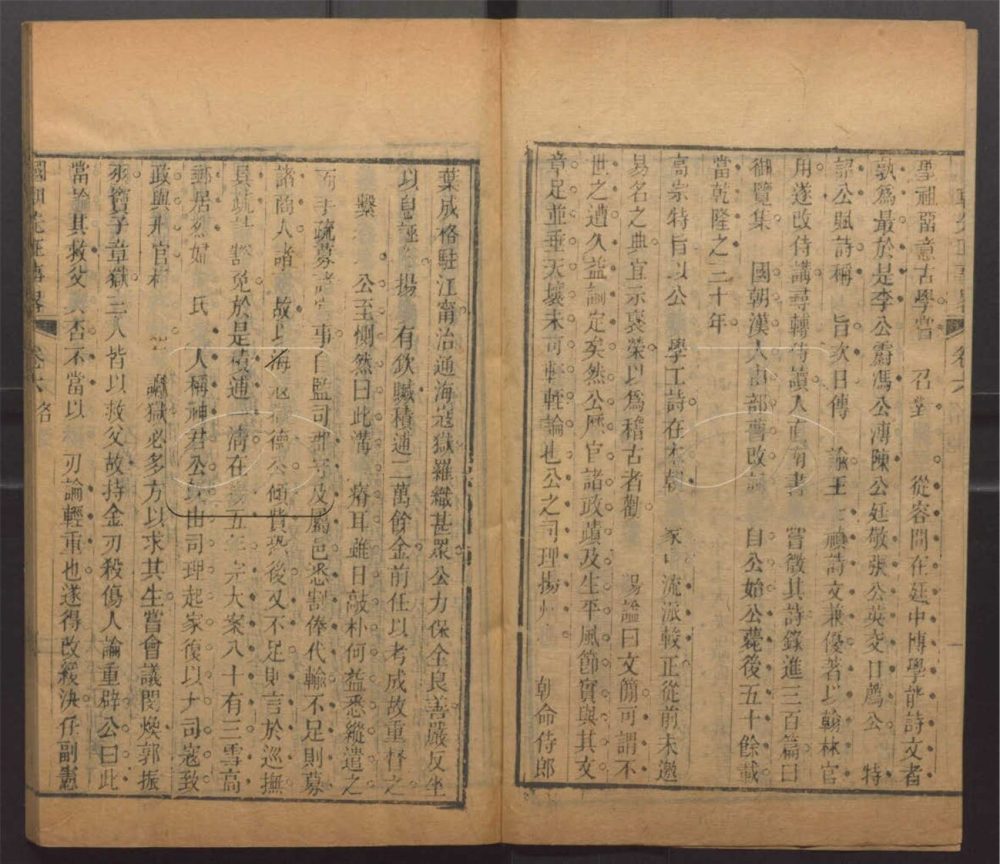 聖祖留意古學嘗 召對 從容問在廷中博學能詩文者
孰為最於是李公霨馮公溥陳公廷敬張公英交口薦公 特
詔公賦詩稱 旨次日傳 諭王 禎詩文兼優著以翰林官
用遂改侍講尋轉侍讀入直南書 嘗徵其詩錄進三百篇曰
御覽集 國朝漢人由部曹改詞 自公始公薨後五十餘載
當乾隆之三十年
高宗特旨以公 學工詩在本朝 家中流派較正從前未邀
易名之典宜示褒榮以為稽古者勸 易諡曰文簡可謂不
世之遭久益論定矣然公歷官諸政蹟及生平風節實與其文
章足並垂天壤未可軒輊論也公之司理揚州 朝命侍郎
葉成格駐江甯治通海寇獄羅織甚眾公力保全良善嚴反坐
以息誣 揚 有欽贓積逋二萬餘金前任以考成故重督之
繫 公至惻然曰此溝 瘠耳雖日敲朴何益悉縱遣之
而手疏募 事自監司 及屬邑悉割俸代輸不足則募
諸商人諸 故以海 德公傾貲恐後又不足則言於巡撫
具疏 豁免於是積逋一清在 五年完大案八十有三雪高
郵居烈婦 氏 人稱神君公 由司理起家復以大司寇致
政與刑官相 讞獄必多方以求其生嘗會議閻煥郭振
羽竇子章獄三人皆以救父故持金刃殺傷人論重辟公曰此
當論其救父 否不當以 刃論輕重也遂得改緩決任副憲
國朝先正事略 卷六 略